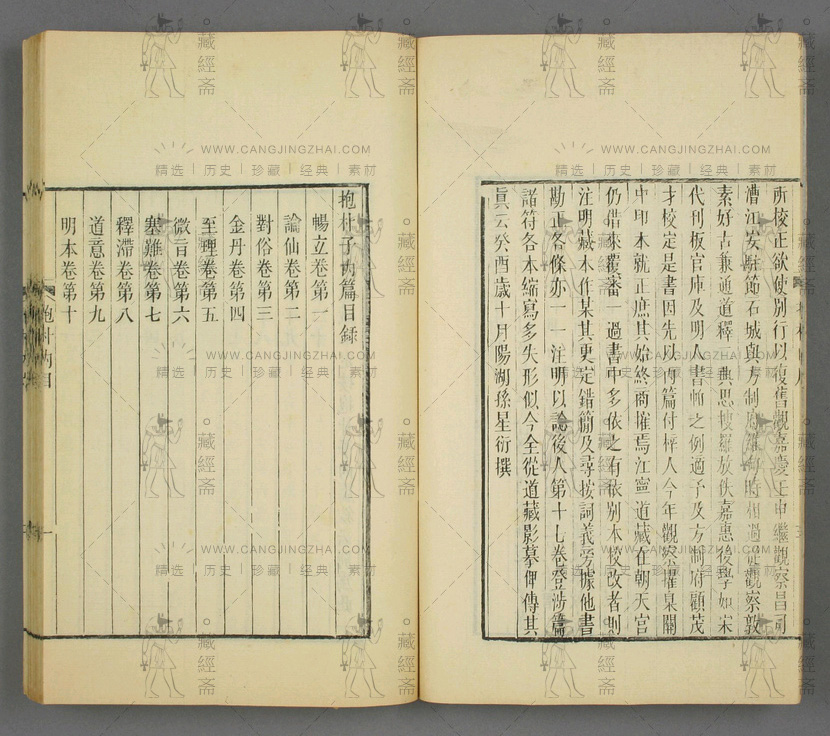 所校正欲使別行以復舊觀嘉慶壬申繼觀察昌司
漕江安駐節石城與方制府維甸時相過從觀察敦
素好古兼通道釋二典思搜羅放佚嘉惠後學如宋
代刊板官庫及明人書帕之例適予及方制府顧茂
才校定是書因先以內篇付梓人今年觀察擢臬開
中印本就正庶其始終商搉焉江寧道藏在朝天宮
仍借來覆審一過書中多依之有依別本校改者則
注明藏本作某其更定錯簡及尋按詞義旁據他書
勘正各條亦一一注明以諗後人第十七卷登涉篇
諸符各本縮寫多失形似今全從道藏影摹俾傳其
眞云癸酉歲十月陽湖孫星衍撰
抱朴子內篇目錄
暢立卷第一
論仙卷第二
對俗卷第三
金丹卷第四
至理卷第五
微旨卷第六
塞難卷第七
釋滯卷第八
道意卷第九
明本卷第十
抱朴內目
一
藏經斋
WWW.CANGJINGZHAI.COM
精选｜历史｜珍藏｜经典｜素材